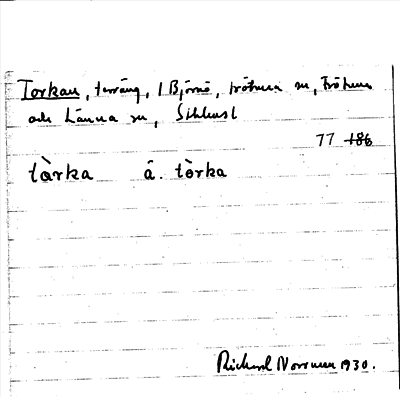 Torkan, terräng, i Björnö, Frötuna sn, Frötuna
och Länna sn, Sthlmsl
77 186
tàrka â. tòrka
Richard Norrman 1930.